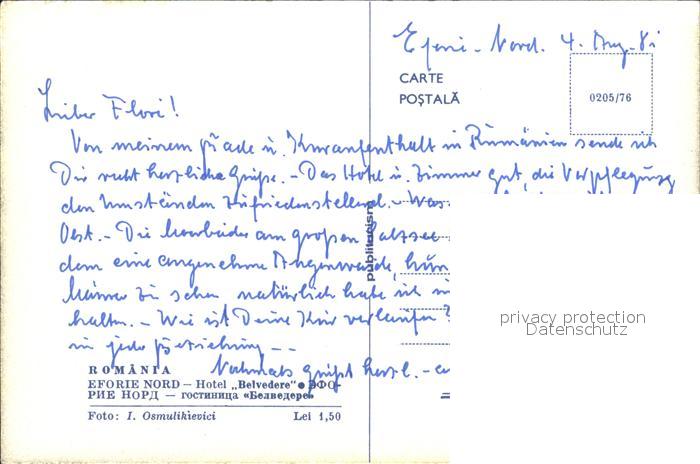 Eforie-Nord. 4. Aug. 81
CARTE
POȘTALĂ
0205/76
Lieber Flori!
Von meinem u. Kuraufenthalt in Rumänien sende ich
Dir recht herzliche Grüße. - Das Hotel u. Zimmer gut, die Verpflegung
den Umständen zufriedenstellend. - Was
Ost. - Die am großen Salzsee
dem eine angenehme
Männer zu sehen natürlich habe ich
halten. - Wie ist Deine Kur verlaufen?
in jeder Beziehung --
Nochmals grüßt herzl. -
ROMÂNIA
EFORIE NORD — Hotel „Belvedere" ● ЭФО-
РИЕ НОРД — гостиница «Белведере»
Foto: I. Osmulikievici Lei 1,50
publiturism
privacy protection
Datenschutz